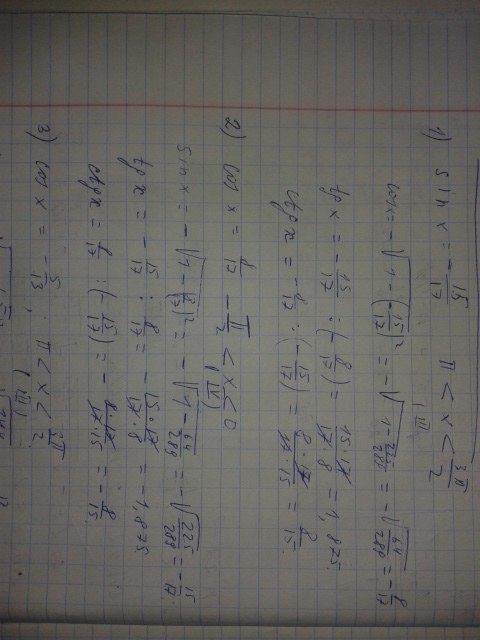 1) sin x = - 15/17 π < x < 3π/2
III
cos x = - √(1 - (15/17)²) = - √(1 - 225/289) = - √(64/289) = - 8/17
tg x = - 15/17 : (- 8/17) = 15·17/17·8 = 1,875.
ctg x = - 8/17 : (- 15/17) = 8·17/17·15 = 8/15.
2) cos x = 8/17 - π/2 < x < 0
IV
sin x = - √(1 - (8/17)²) = - √(1 - 64/289) = - √(225/289) = - 15/17
tg x = - 15/17 : 8/17 = - 15·17/17·8 = - 1,875
ctg x = 8/17 : (- 15/17) = - 8·17/17·15 = - 8/15.
3) cos x = - 5/13. π < x < 3π/2
III